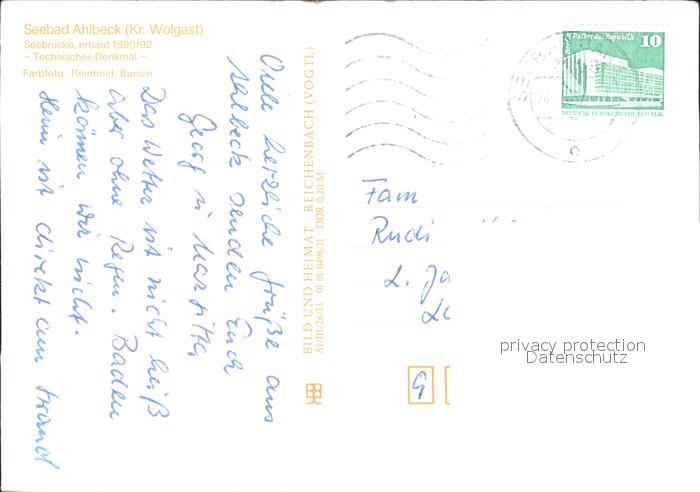 Seebad Ahlbeck (Kr. Wolgast)
Seebrücke, erbaut 1890/92
– Technisches Denkmal –
Farbfoto: Reinhold, Bansin
Viele herzliche Grüße aus
Ahlbeck senden Euch
Georg u.
Das Wetter ist nicht heiß
aber ohne Regen. Baden
können wir nicht.
Heim ist direkt am Strand
BILD UND HEIMAT REICHENBACH (VOGTL)
A1/III/26/13 01 01 0496/11 DDR 0,20 M
10
Palast der Republik
DEUTSCHE DEMOKRATISCHE REPUBLIK
SEEBAD
c
Fam
Rudi
privacy protection
Datenschutz
9